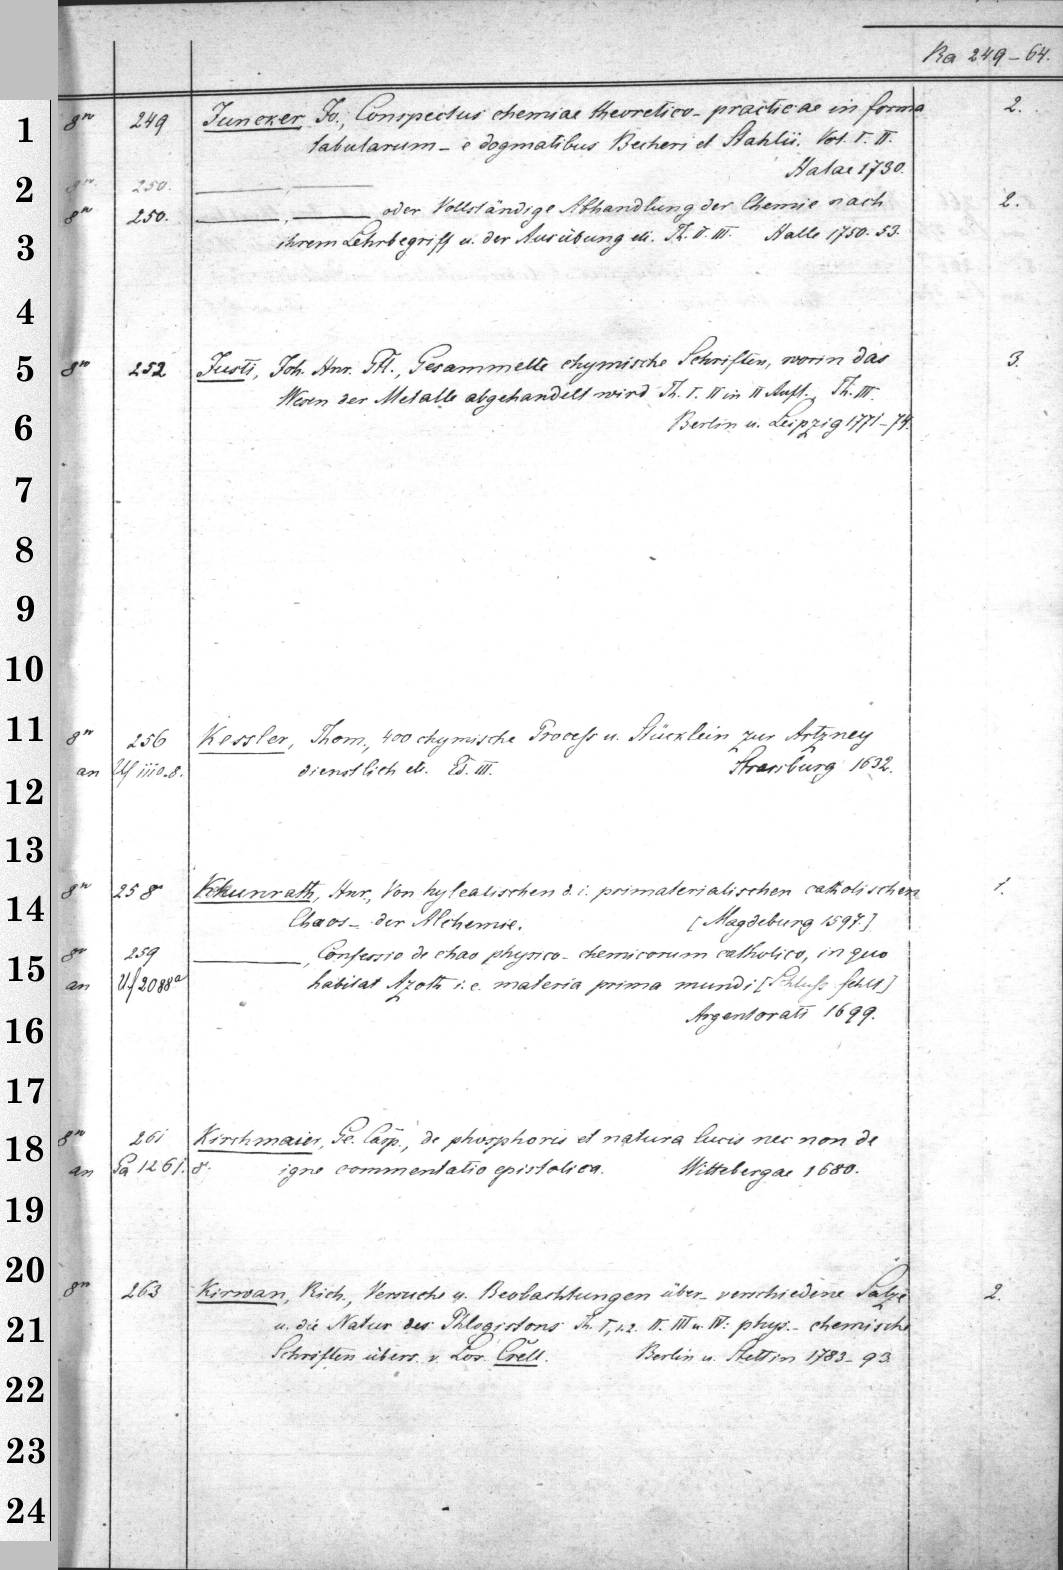 Ra 249-64.
1 8vo 249 Juncker, Jo., Conspectus chemiae theoretico- practicae in forma 2.
tabularum - e dogmatibus Becheri et Stahlii. Vol. I. II.
Halae 1730.
2 8vo 250. ———, ———
8vo 250. ———, ——— oder Vollständige Abhandlung der Chemie nach 2.
3 ihrem Lehrbegriff u. der Ausübung etc. Th. II. III. Halle 1750. 53.
4
5 8vo 252 Justi, Joh. Hnr. Gtl., Gesammelte chymische Schriften, worin das 3.
Wesen der Metalle abgehandelt wird Th. I. II in II Aufl. Th. III.
6 Berlin u. Leipzig 1771-74.
7
8
9
10
11 8vo 256 Kessler, Thom., 400 chymische Process u. Stücklein zur Artzney
an Uf 1110. 8. dienstlich etc. Ed. III. Strassburg 1632.
12
13
14 8vo 258 Kkunrath, Hnr., Von hylealischen d. i. primaterialischen catholischen 1.
Chaos - der Alchemie. [Magdeburg 1597.]
15 8vo 259 ———, Confessio de chao physico- chemicorum catholico, in quo
an Uf 2088a habitat Azoth i. e. materia prima mundi [Schluss fehlt]
16 Argentorati 1699.
17
18 8vo 261 Kirchmaier, Ge. Casp., de phosphoris et natura lucis nec non de
an Pa 1261. 8. igne commentatio epistolica. Wittebergae 1680.
19
20 8vo 263 Kirwan, Rich., Versuche u. Beobachtungen über verschiedene Salze 2.
21 u. die Natur des Phlogistons Th. I, 1.2. II. III u. IV: phys.- chemische
Schriften übers. v. Lor. Crell. Berlin u. Stettin 1783-93
22
23
24